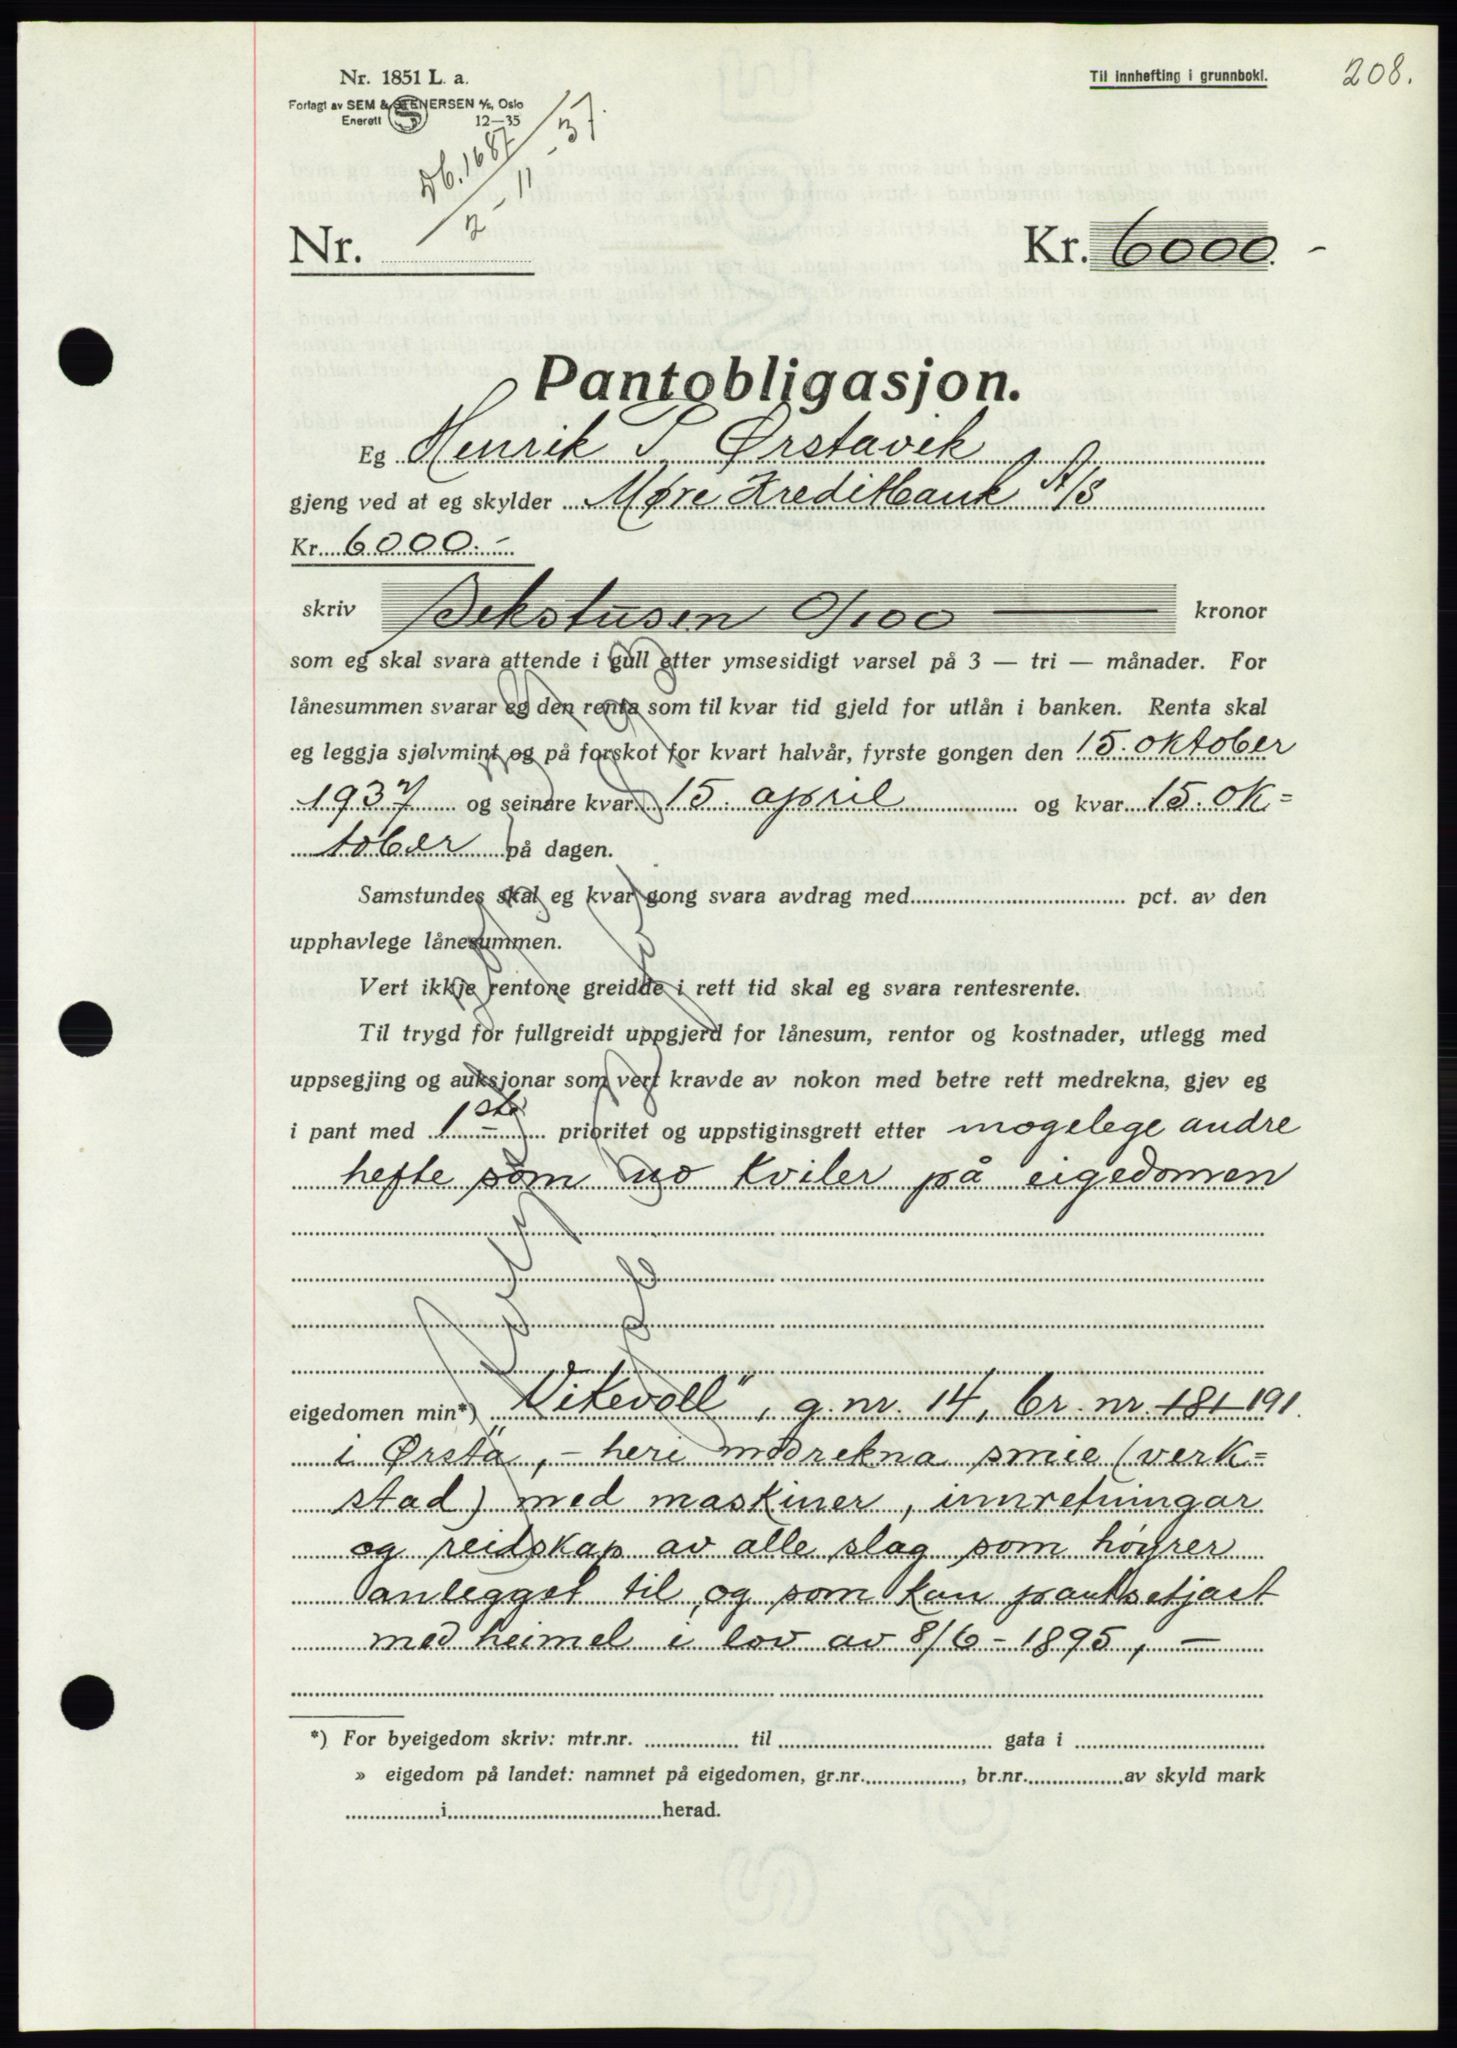 208.
Nr. 1851 L. a.
Til innhefting i grunnboki.
Forlagt av SEM & STENERSEN A/S, Oslo
Enerett 12—35
Db. 1687
2 - 11 - 37.
Nr. Kr. 6000. -
Pantobligasjon.
Eg Henrik S. Ørstavik
gjeng ved at eg skylder Møre Kreditbank A/S
Kr. 6000.-
skriv Sekstusen 0/100 kronor
som eg skal svara attende i gull etter ymsesidigt varsel på 3 — tri — månader. For
lånesummen svarar eg den renta som til kvar tid gjeld for utlån i banken. Renta skal
eg leggja sjølvmint og på forskot for kvart halvår, fyrste gongen den 15. oktober
1937 og seinare kvar 15. april og kvar 15. ok=
tober på dagen.
Samstundes skal eg kvar gong svara avdrag med pct. av den
upphavlege lånesummen.
Vert ikkje rentone greidde i rett tid skal eg svara rentesrente.
Til trygd for fullgreidt uppgjerd for lånesum, rentor og kostnader, utlegg med
uppsegjing og auksjonar som vert kravde av nokon med betre rett medrekna, gjev eg
i pant med 1ste prioritet og uppstiginsgrett etter mogelege andre
hefte som no kviler på eigedomen
eigedomen min*) "Vikevoll", g. nr. 14, br. nr. 181 191.
i Ørsta, - heri medrekna smie (verk=
stad) med maskiner, innretningar
og reidskap av alle slag som høyrer
anlegget til, og som kan pantsetjast
med heimel i lov av 8/6 - 1895, -
*) For byeigedom skriv: mtr.nr. til gata i
» eigedom på landet: namnet på eigedomen, gr.nr. , br.nr. av skyld mark
i herad.